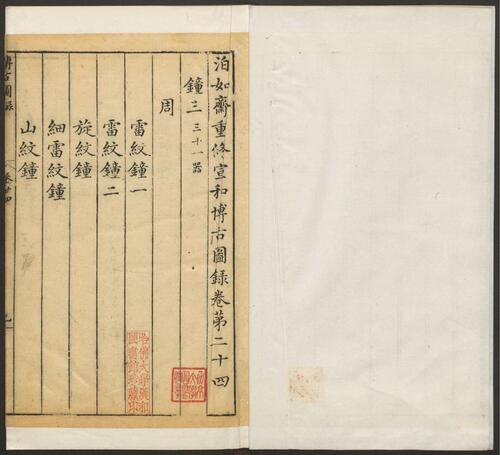 泊如齋重修宣和博古圖錄卷第二十四
鐘三三十一器
周
雷紋鐘一
雷紋鐘二
旋紋鐘
細雷紋鐘
山紋鐘
博古圖錄
卷廿四